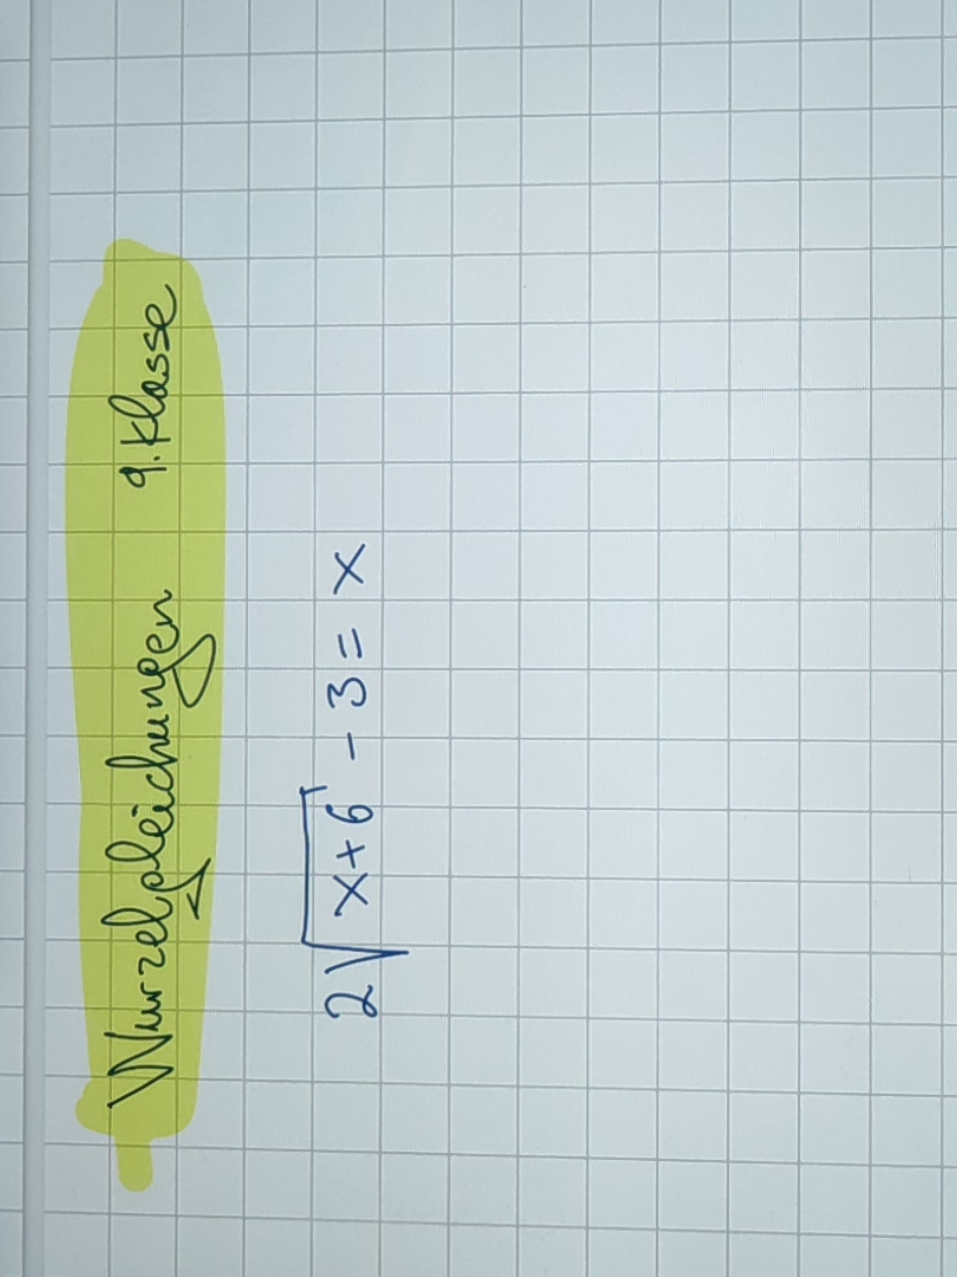 Wurzelgleichungen 9. Klasse
2√(x+6) - 3 = x